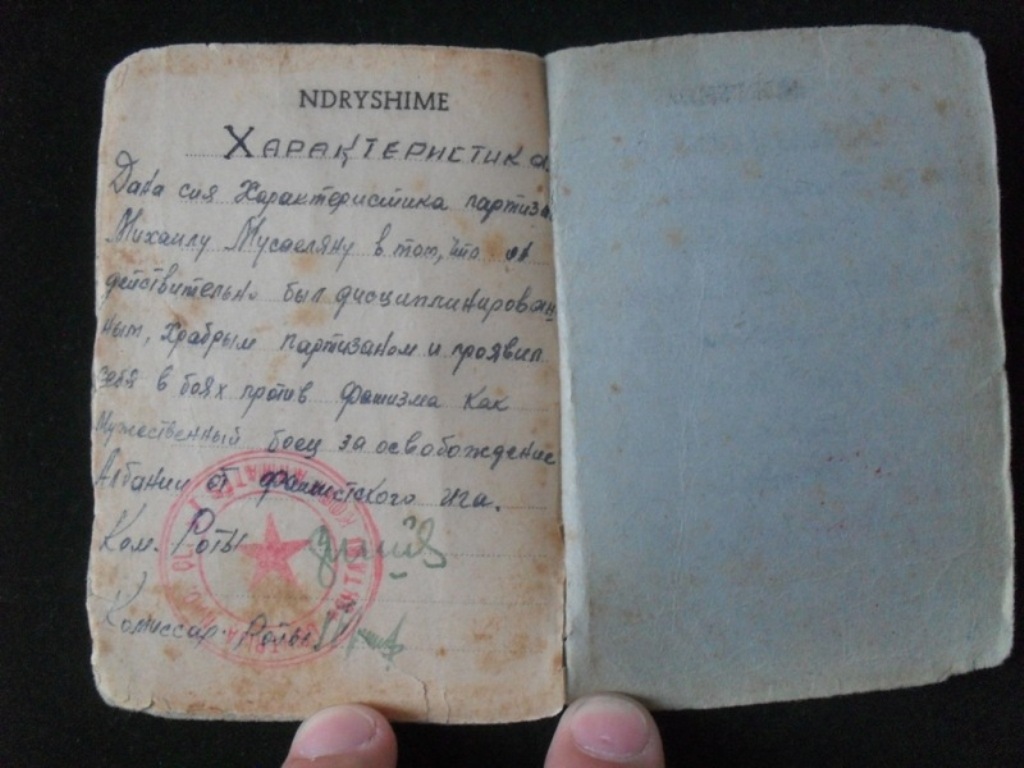 NDRYSHIME
Характеристика
Дана сия Характеристика партиза
Михаилу Мусаеляну в том, что он
действительно был дисциплинирован
ным, храбрым партизаном и проявил
себя в боях против фашизма как
мужественный боец за освобождение
Албании от фашистского ига.
Ком. Роты
Комиссар. Роты